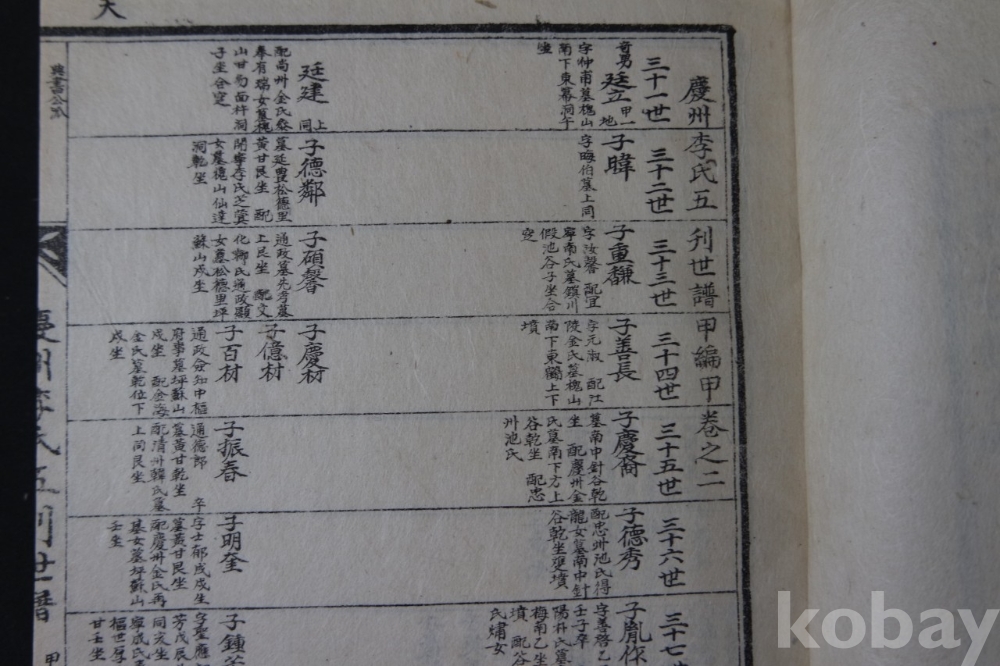 天
慶州李氏五刋世譜甲編甲卷之二
三十一世
奇男
廷立
甲一
地
字仲甫墓槐山
南下東幕洞午
坐
廷建
上
同
配尚州金氏
奉有瑞女墓槐
山甘勿面杵洞
子坐合窆
三十二世
子暐
字晦伯墓上同
子德鄰
墓延豊松德里
黄甘艮坐 配
開寧李氏芝蓂
女墓槐山仙達
洞乾坐
三十三世
子重馦
字汝馨 配宜
寧南氏墓鎮川
假池谷子坐合
窆
子碩馨
通政墓先考墓
上艮坐 配文
化柳氏通政顯
女墓松德里坪
蘇山戍坐
三十四世
子善長
字元淑 配江
陵金氏墓槐山
南下東幕上下
墳
子慶材
子億材
子百材
通政僉知中樞
府事墓坪蘇山
戌坐 配金海
金氏墓乾位下
戌坐
三十五世
子慶裔
墓南中針谷乾
坐 配慶州金
氏墓南下方上
谷乾坐 配忠
州池氏
子振春
通德郎 卒
墓黄甘乾坐
配清州韓氏墓
上同艮坐
三十六世
子德秀
配忠州池氏得
龍女墓南中針
谷乾坐雙墳
子明奎
字士郁戍戍生
墓黄甘艮坐
配慶州金氏再
基女墓坪蘇山
壬坐
三十七世
子胤
字善啓乙
壬子卒
陽朴氏墓
梅南乙坐
墳 配谷
氏嫞女
子鍾
字聖應
芳戊辰
同亥坐
寧
樞世厚
甘壬坐
慶州李氏五刋世譜
甲
kobay